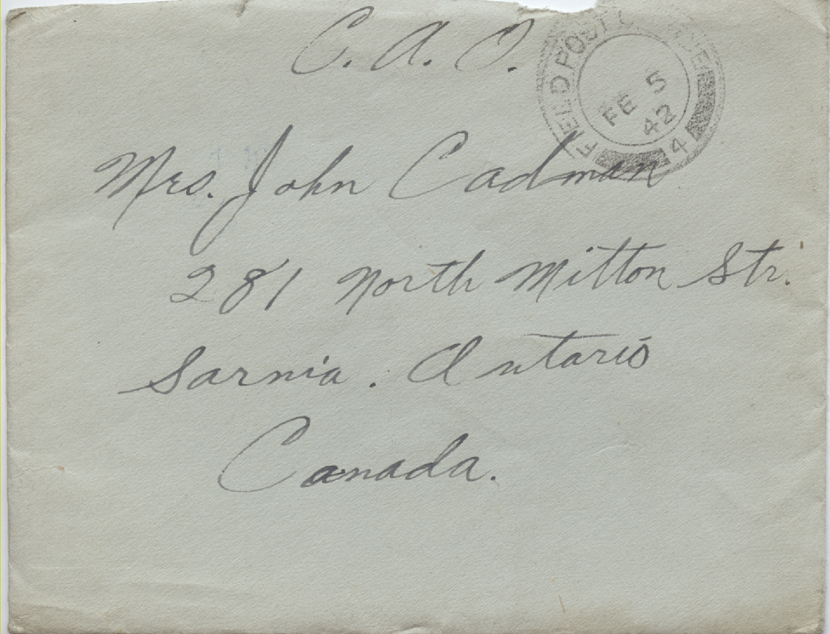 C. A. O.
FIELD POST OFFICE
FE 5
42
4
Mrs. John Cadman
281 North Mitton Str.
Sarnia. Ontario
Canada.